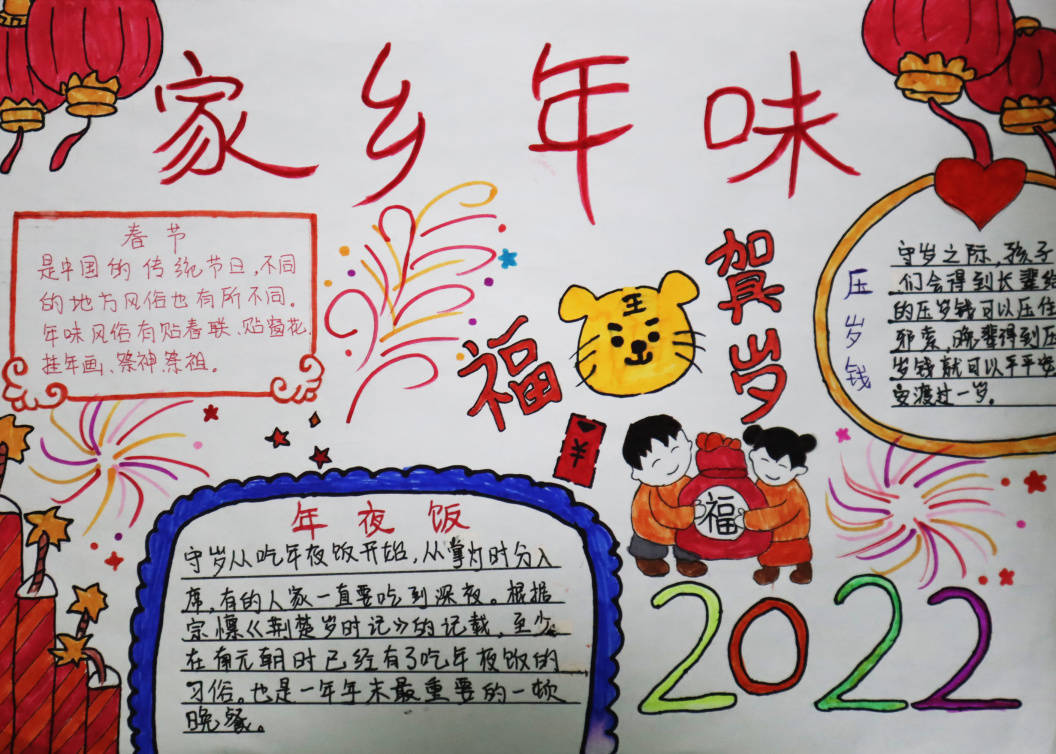 家乡年味
春节
是中国的传统节日,不同
的地方风俗也有所不同。
年味风俗有贴春联、贴窗花、
挂年画、祭神祭祖。
福
王
贺岁
¥
福
压岁钱
守岁之际,孩子
们会得到长辈给
的压岁钱可以压住
邪祟,晚辈得到压
岁钱就可以平平安
安渡过一岁。
年夜饭
守岁从吃年夜饭开始,从掌灯时分入
席,有的人家一直要吃到深夜。根据
宗懔《荆楚岁时记》的记载,至少
在南朝时已经有了吃年夜饭的
习俗。也是一年年末最重要的一顿
晚餐。
2022